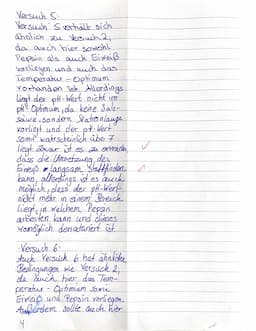 Versuch 5:
Versuch 5 verhält sich
ähnlich zu Versuch 2,
da auch hier sowohl
Pepsin als auch Eiweiß
vorliegen und auch das
Temperatur-Optimum
vorhanden ist. Allerdings
liegt der pH-Wert nicht im
pH-Optimum, da keine Salz-
säure, sondern Stationlauge
vorliegt und der pH-Wert
somit wahrscheinlich über 7
liegt. Zwar ist es zu erwarten,
dass die Umsetzung des
Eiweiß langsam stattfinden
kann, allerdings ist es auch
möglich, dass der pH-Wert
nicht mehr in einem Bereich
liegt, in welchem Pepsin
arbeiten kann und dieses
womöglich denaturiert ist.
Versuch 6:
Auch Versuch 6 hat ähnliche
Bedingungen wie Versuch 2,
da auch hier das Tem-
peratur-Optimum sowie
Eiweiß und Pepsin vorliegen.
Außerdem sollte auch hier
4